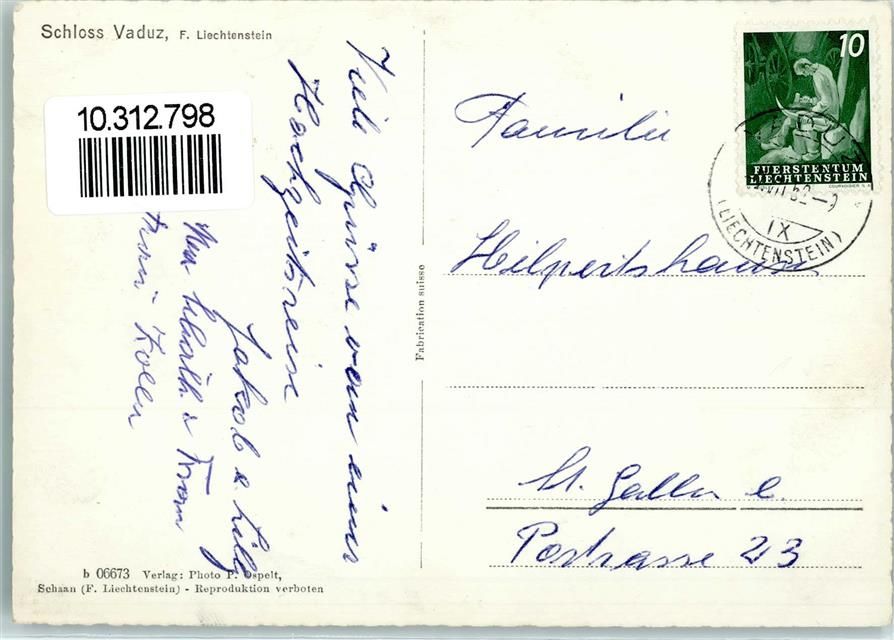 Schloss Vaduz, F. Liechtenstein
10.312.798
Viele Grüsse von einer
Hochzeitsreise
Jakob & Lilly
& Frau
10
FUERSTENTUM
LIECHTENSTEIN
COURVOISIER S.A.
IX
(LIECHTENSTEIN)
Familie
Hilpertshauser
St. Gallen
23
Fabrication suisse
b 06673 Verlag: Photo P. Ospelt,
Schaan (F. Liechtenstein) - Reproduktion verboten